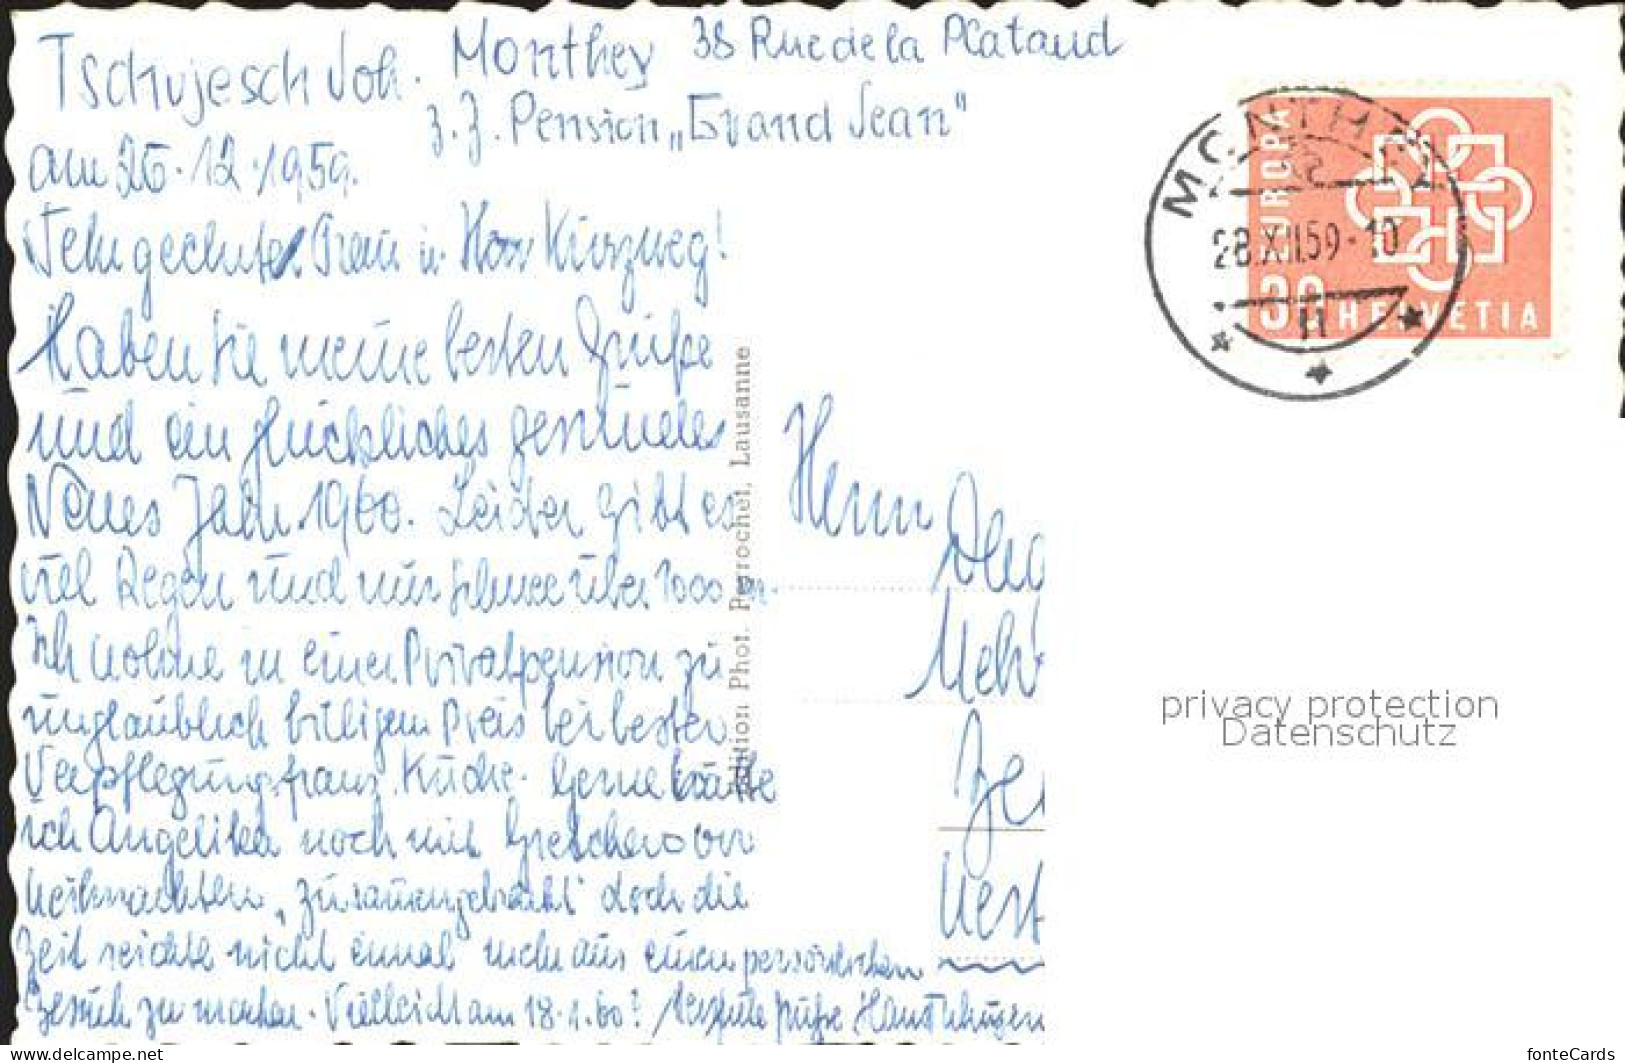 Tschujesch Joh. Monthey 38 Rue de la Plataud
z. Z. Pension „Grand Jean"
am 26.12.1959.
Sehr geehrte Frau u. Herr Kurzweg!
Haben Sie meine besten Grüße
und ein glückliches gesundes
Neues Jahr 1960. Leider gibt es
viel Regen und nur Schnee über 1000 m.
Ich wohne in einer Privatpension zu
unglaublich billigem Preis bei bester
Verpflegung, franz. Küche. Gerne hätte
ich Angelika noch mit vor
Weihnachten „zusammengebracht" doch die
Zeit reichte nicht einmal mehr aus einen persönlichen
Besuch zu machen. Vielleicht am 18.1.60? Grüße
Edition Phot. Perrochet, Lausanne
Herrn
MONTHEY
28.XII.59-10
EUROPA
30 HELVETIA
privacy protection
Datenschutz
www.delcampe.net
fonteCards